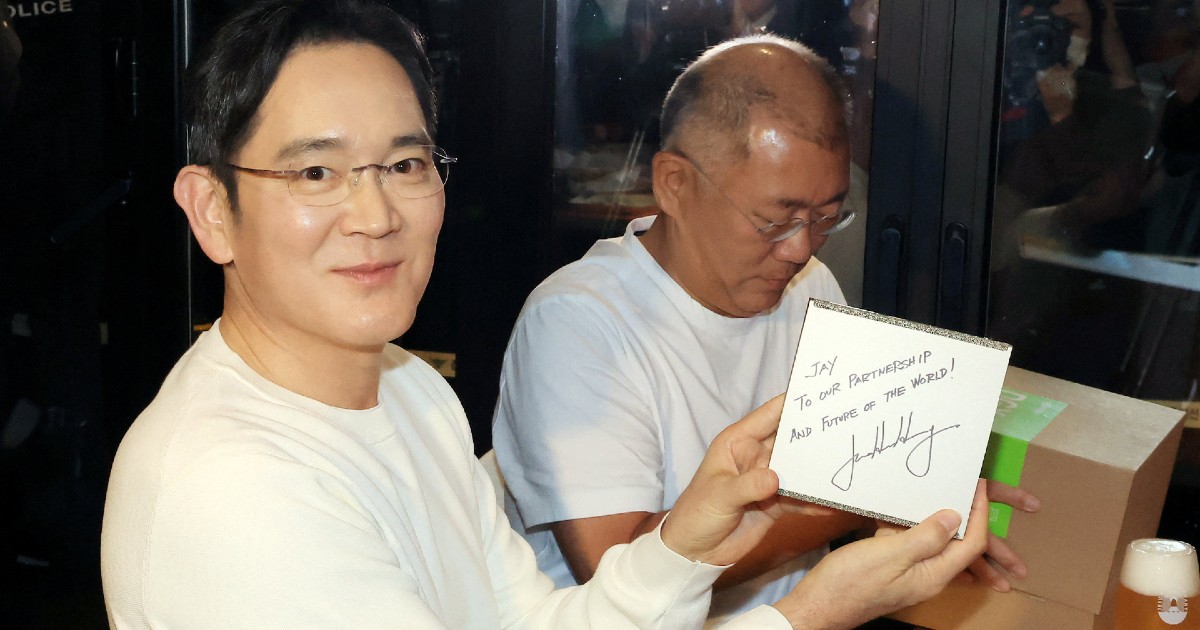 OLICE
JAY
TO OUR PARTNERSHIP
AND FUTURE OF THE WORLD!